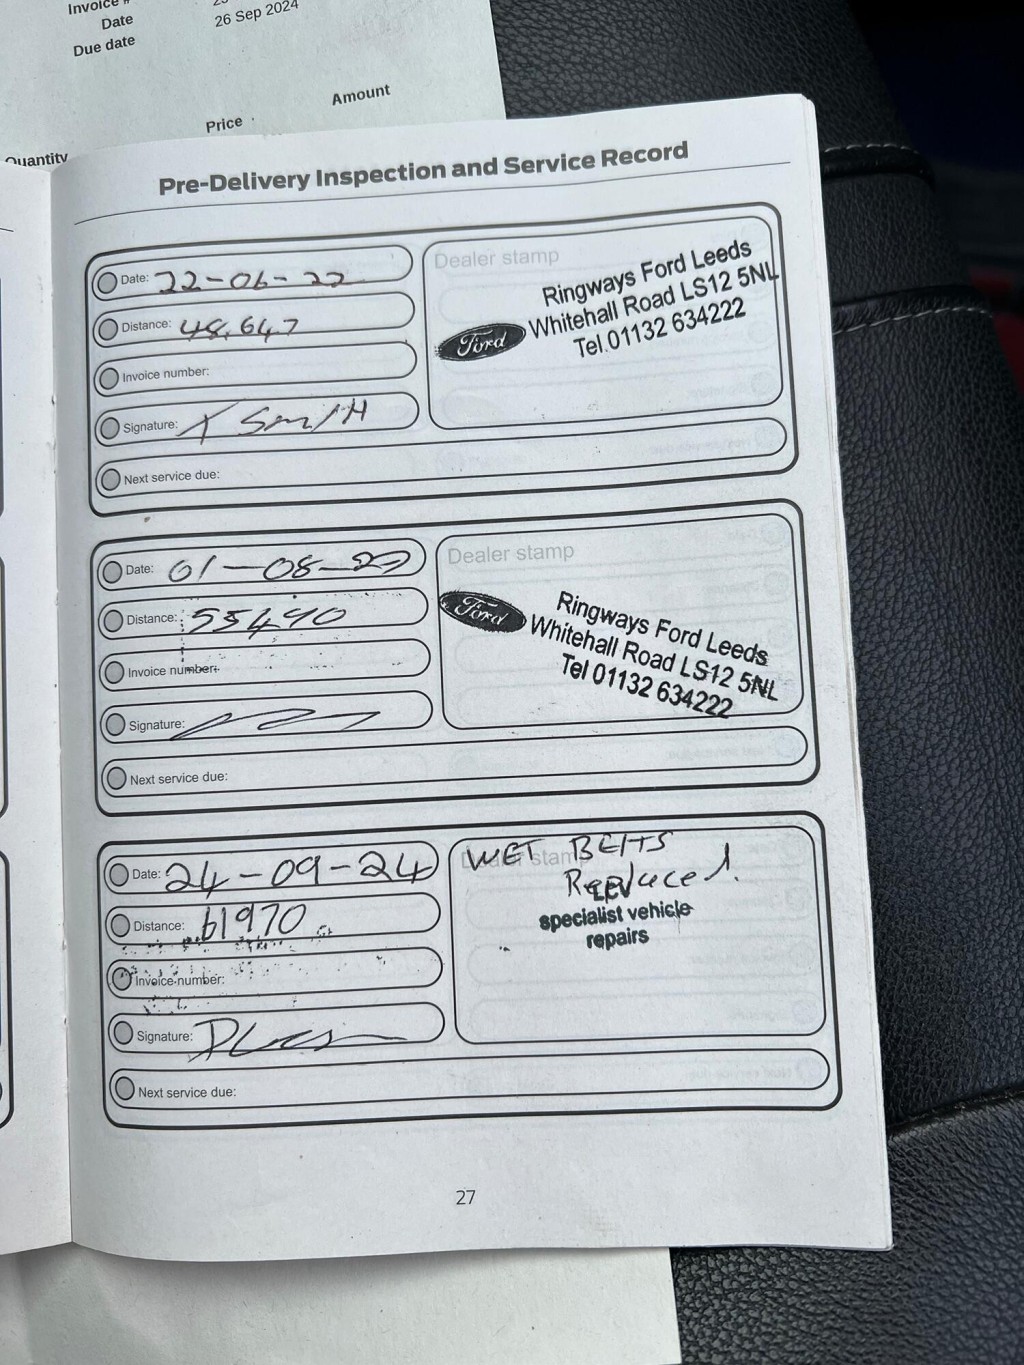 Invoice #
Date
26 Sep 2024
Due date
Amount
Price
Quantity
Pre-Delivery Inspection and Service Record
Date: 22-06-22
Distance: 48,647
Invoice number:
Signature: X SmitH
Next service due:
Dealer stamp
Ford
Ringways Ford Leeds
Whitehall Road LS12 5NL
Tel.01132 634222
Date: 01-08-23
Distance: 55490
Invoice number:
Signature:
Next service due:
Dealer stamp
Ford
Ringways Ford Leeds
Whitehall Road LS12 5NL
Tel 01132 634222
Date: 24-09-24
Distance: 61970
Invoice number:
Signature:
Next service due:
Dealer stamp
WET BElTS
Replaced.
specialist vehicle
repairs
27